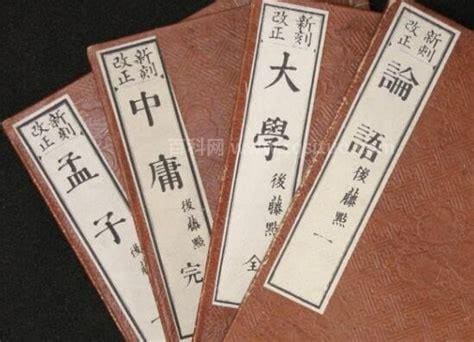 新刻
改正
論語
後藤點
一
新刻
改正
大學
後藤點
全
新刻
改正
中庸
後藤點
完
新刻
改正
孟子
後藤點
百科网